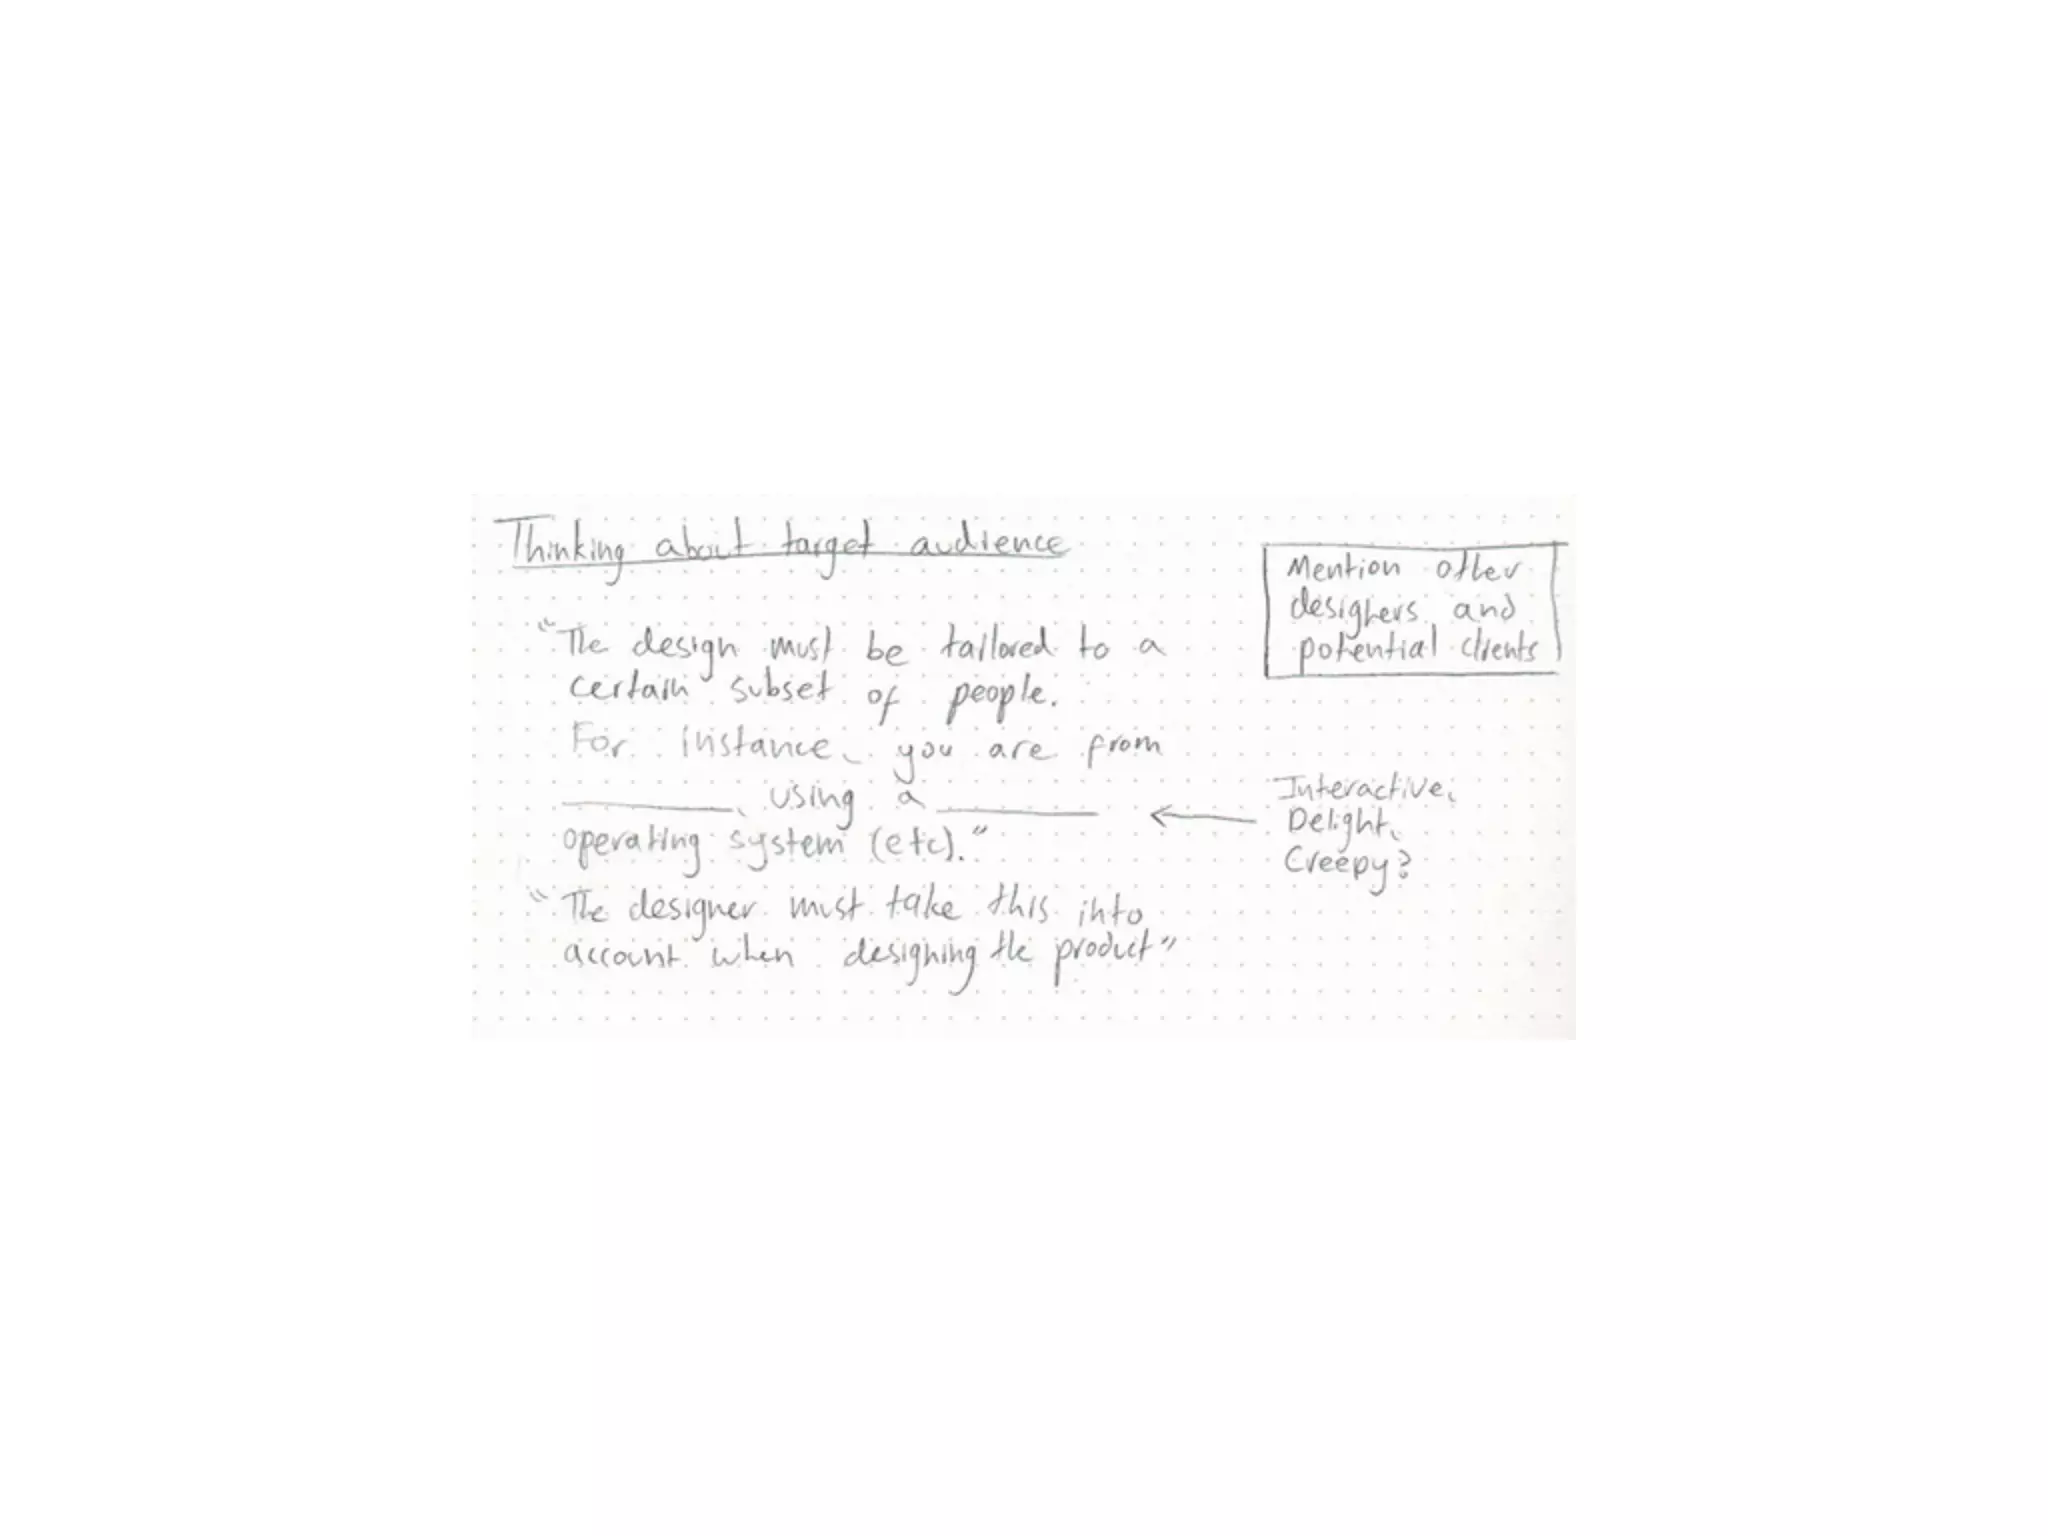 Thinking about target audience
Mention other
designers and
potential clients
"The design must be tailored to a
certain subset of people.
For instance, you are from
________, using a ________
operating system (etc)."
Interactive,
Delight,
Creepy?
"The designer must take this into
account when designing the product"